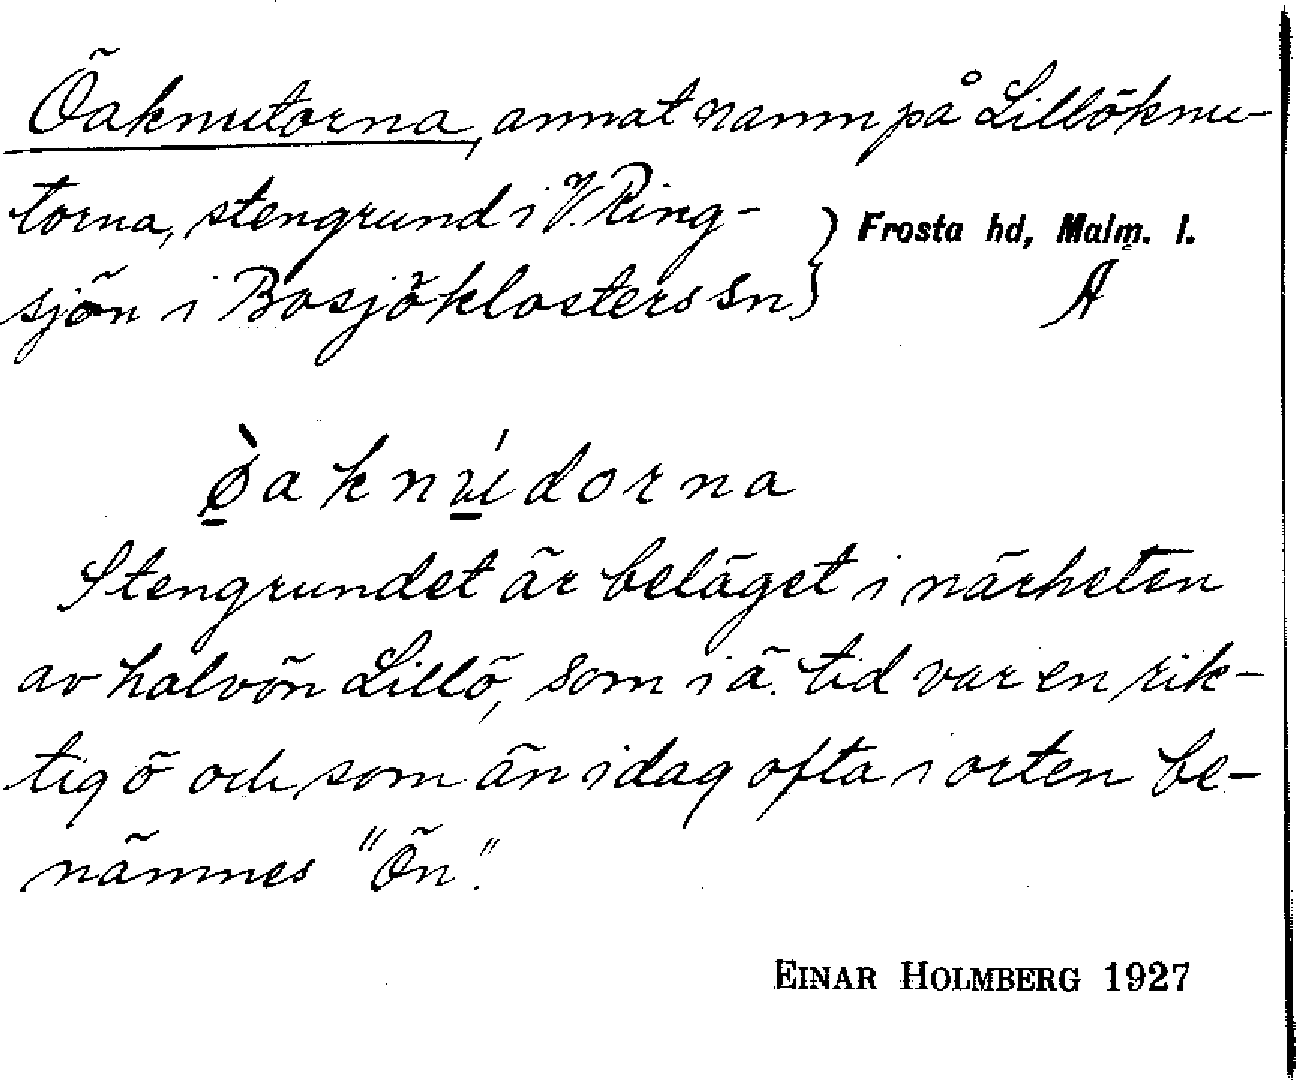 Öaknutorna, annat namn på Lillöknu-
torna, stengrund i V. Ring-
sjön i Bosjöklosters sn } Frosta hd, Malm. l.
A
ø̱̀aknú̱dorna
Stengrundet är beläget i närheten
av halvön Lillö, som i ä. tid var en rik-
tig ö och som än idag ofta i orten be-
nämnes "Ön".
EINAR HOLMBERG 1927